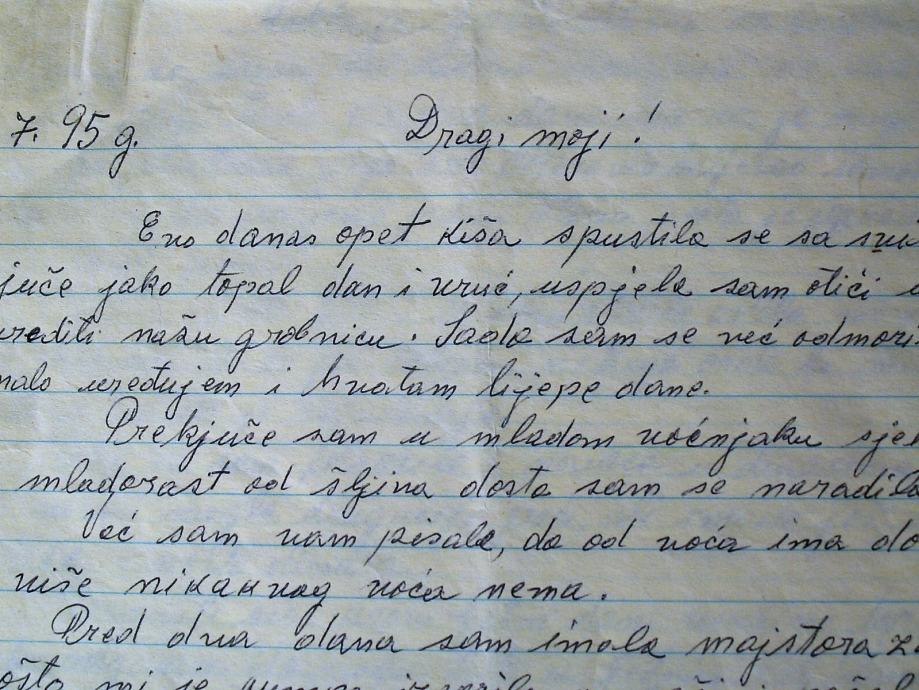 7. 95 g. Dragi moji!
Evo danas opet kiša spustila se sa
juče jako topal dan i vruć, uspjela sam otići
urediti našu grobnicu. Sada sam se već odmori
malo uređujem i hvatam lijepe dane.
Prekjuče sam u mladom voćnjaku sje
mladorast od šljiva dosta sam se naradila
Već sam vam pisala, da od voća ima do
više nikakvog voća nema.
Pred dva dana sam imala majstora za
pošto mi je